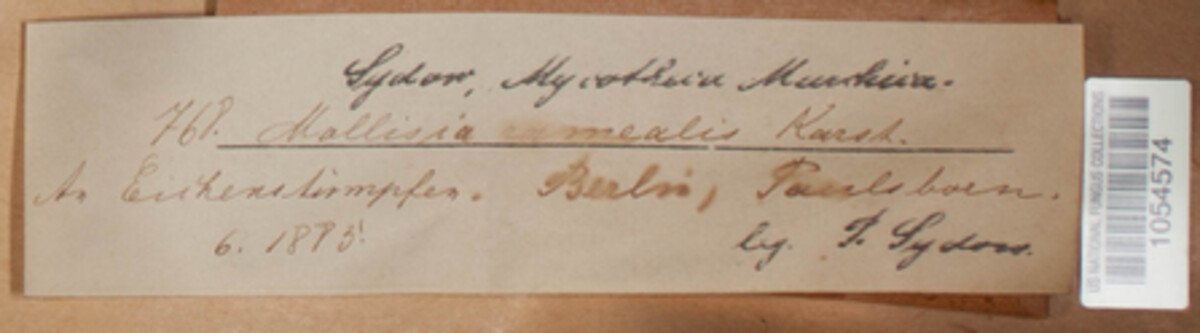 Sydow, Mycotheca Marchica.
768. Mollisia ramealis Karst.
An Eichenstümpfen. Berlin, Paulsborn.
6. 1885!
leg. P. Sydow.
US NATIONAL FUNGUS COLLECTIONS
1054574